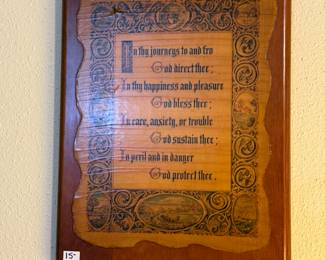 In thy journeys to and fro
God direct thee;
In thy happiness and pleasure
God bless thee;
In care, anxiety, or trouble
God sustain thee;
In peril and in danger
God protect thee.
15-